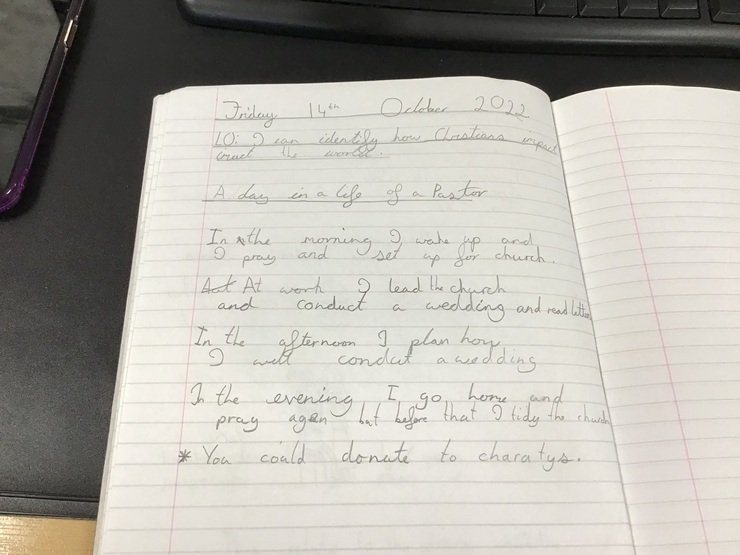 Friday 14th October 2022
LO: I can identify how Christians impact
the world.
A day in a life of a Pastor
In the morning I wake up and
I pray and set up for church.
At work I lead the church
and conduct a wedding and read letters
In the afternoon I plan how
I will conduct a wedding
In the evening I go home and
pray agen but before that I tidy the church
* You could donate to charatys.